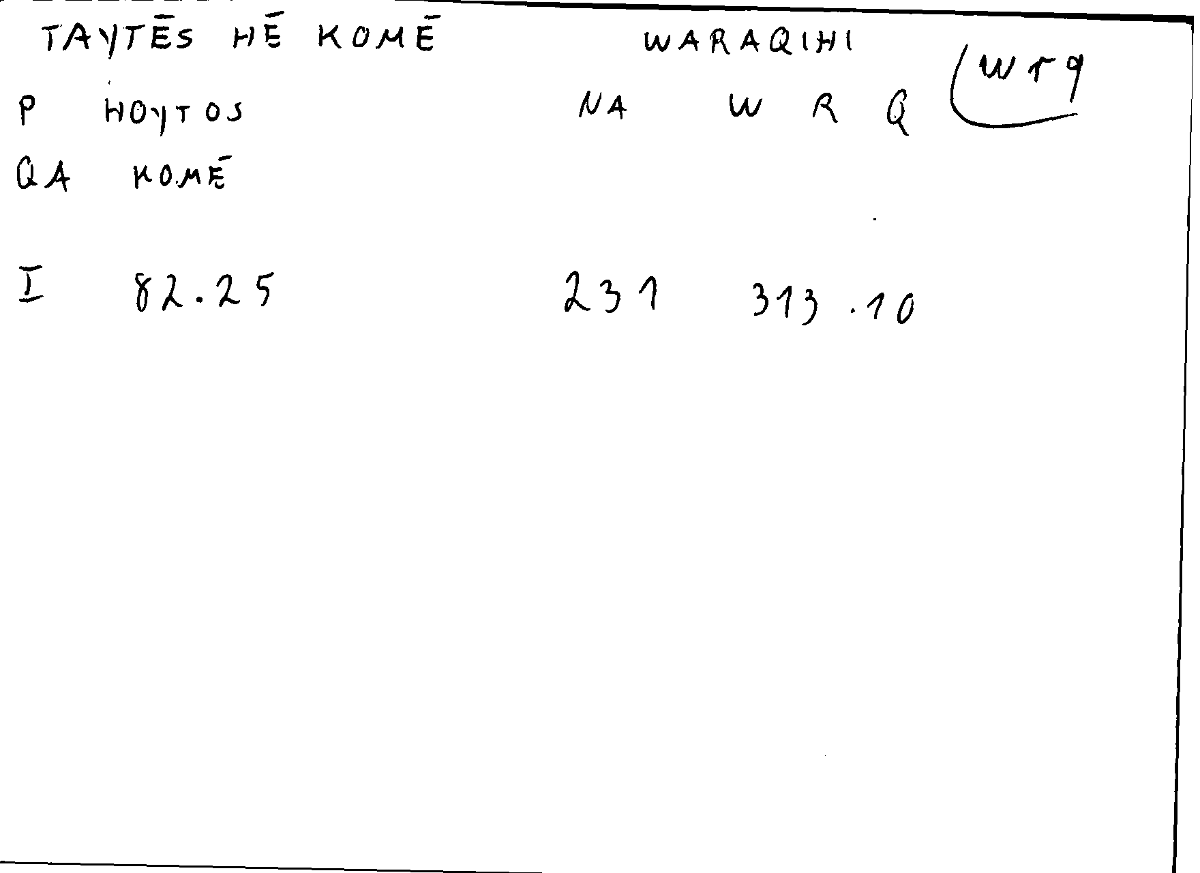 TAYTĒS HĒ KOMĒ WARAQIHI
P HOYTOS NA W R Q wrq
QA KOMĒ
I 82.25 231 313.10